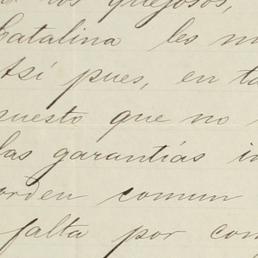 los quejosos,
Catalina les m
Así pues, en ta
puesto que no
las garantías i
orden comun
falta por com